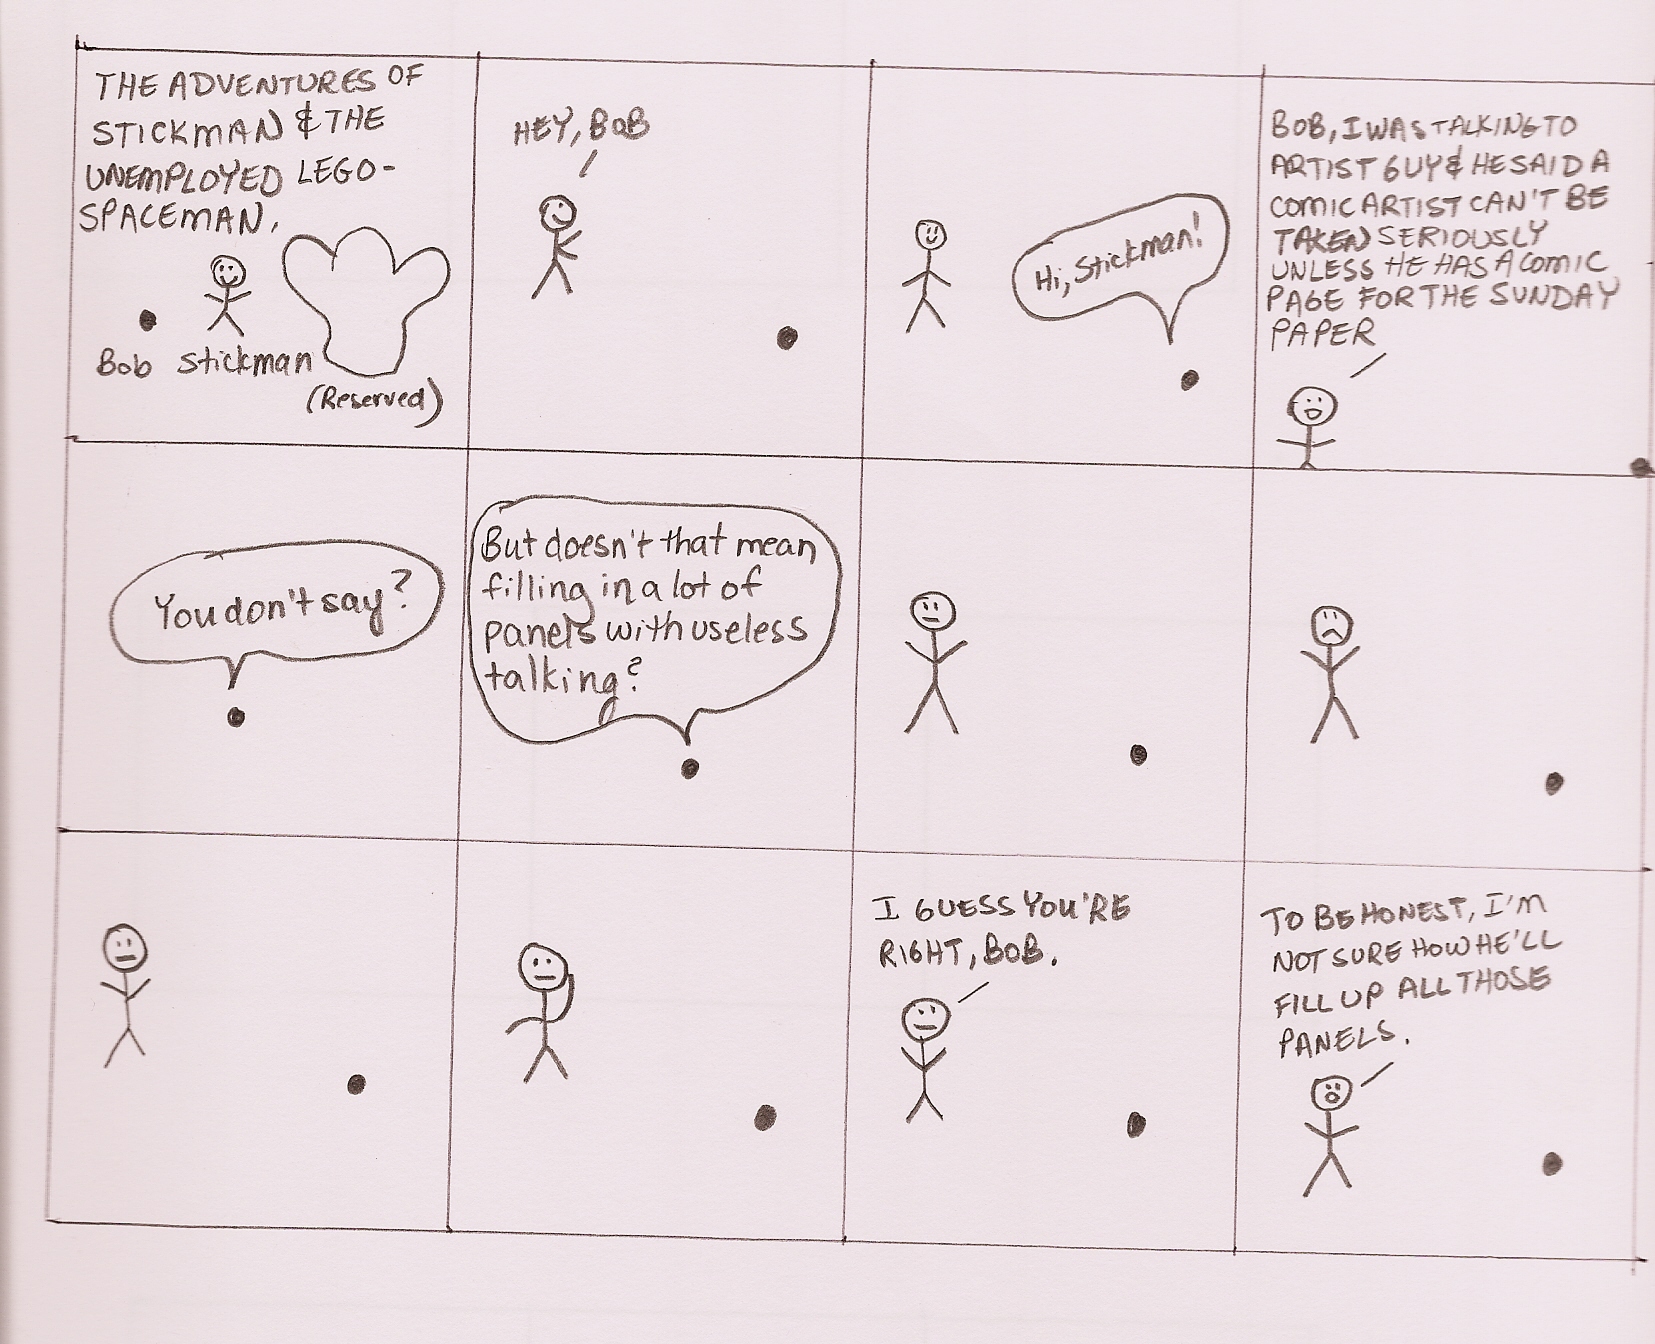 THE ADVENTURES OF
STICKMAN & THE
UNEMPLOYED LEGO-
SPACEMAN.
Bob Stickman
(Reserved)
HEY, BOB
Hi, Stickman!
BOB, I WAS TALKING TO
ARTIST GUY & HE SAID A
COMIC ARTIST CAN'T BE
TAKEN SERIOUSLY
UNLESS HE HAS A COMIC
PAGE FOR THE SUNDAY
PAPER
You don't say?
But doesn't that mean
filling in a lot of
panels with useless
talking?
I GUESS YOU'RE
RIGHT, BOB.
TO BE HONEST, I'M
NOT SURE HOW HE'LL
FILL UP ALL THOSE
PANELS.